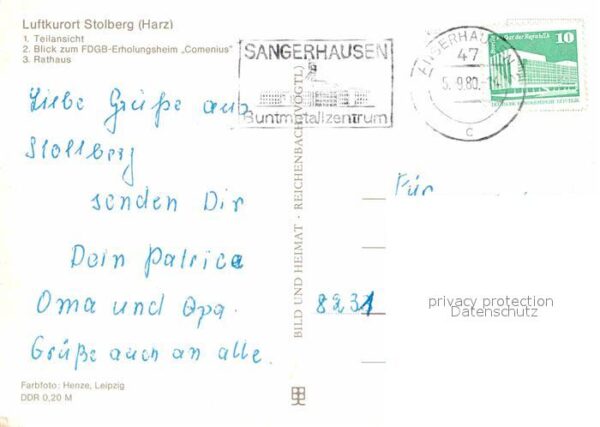 Luftkurort Stolberg (Harz)
1. Teilansicht
2. Blick zum FDGB-Erholungsheim „Comenius"
3. Rathaus
SANGERHAUSEN
Buntmetallzentrum
SANGERHAUSEN
47
5.-9.80.-14
c
Palast der Republik
10
DEUTSCHE DEMOKRATISCHE REPUBLIK
Liebe Grüße aus
Stollberg
senden Dir
Dein Patrice
Oma und Opa.
Grüße auch an alle.
BILD UND HEIMAT · REICHENBACH (VOGTL)
Für
8231
privacy protection
Datenschutz
Farbfoto: Henze, Leipzig
DDR 0,20 M